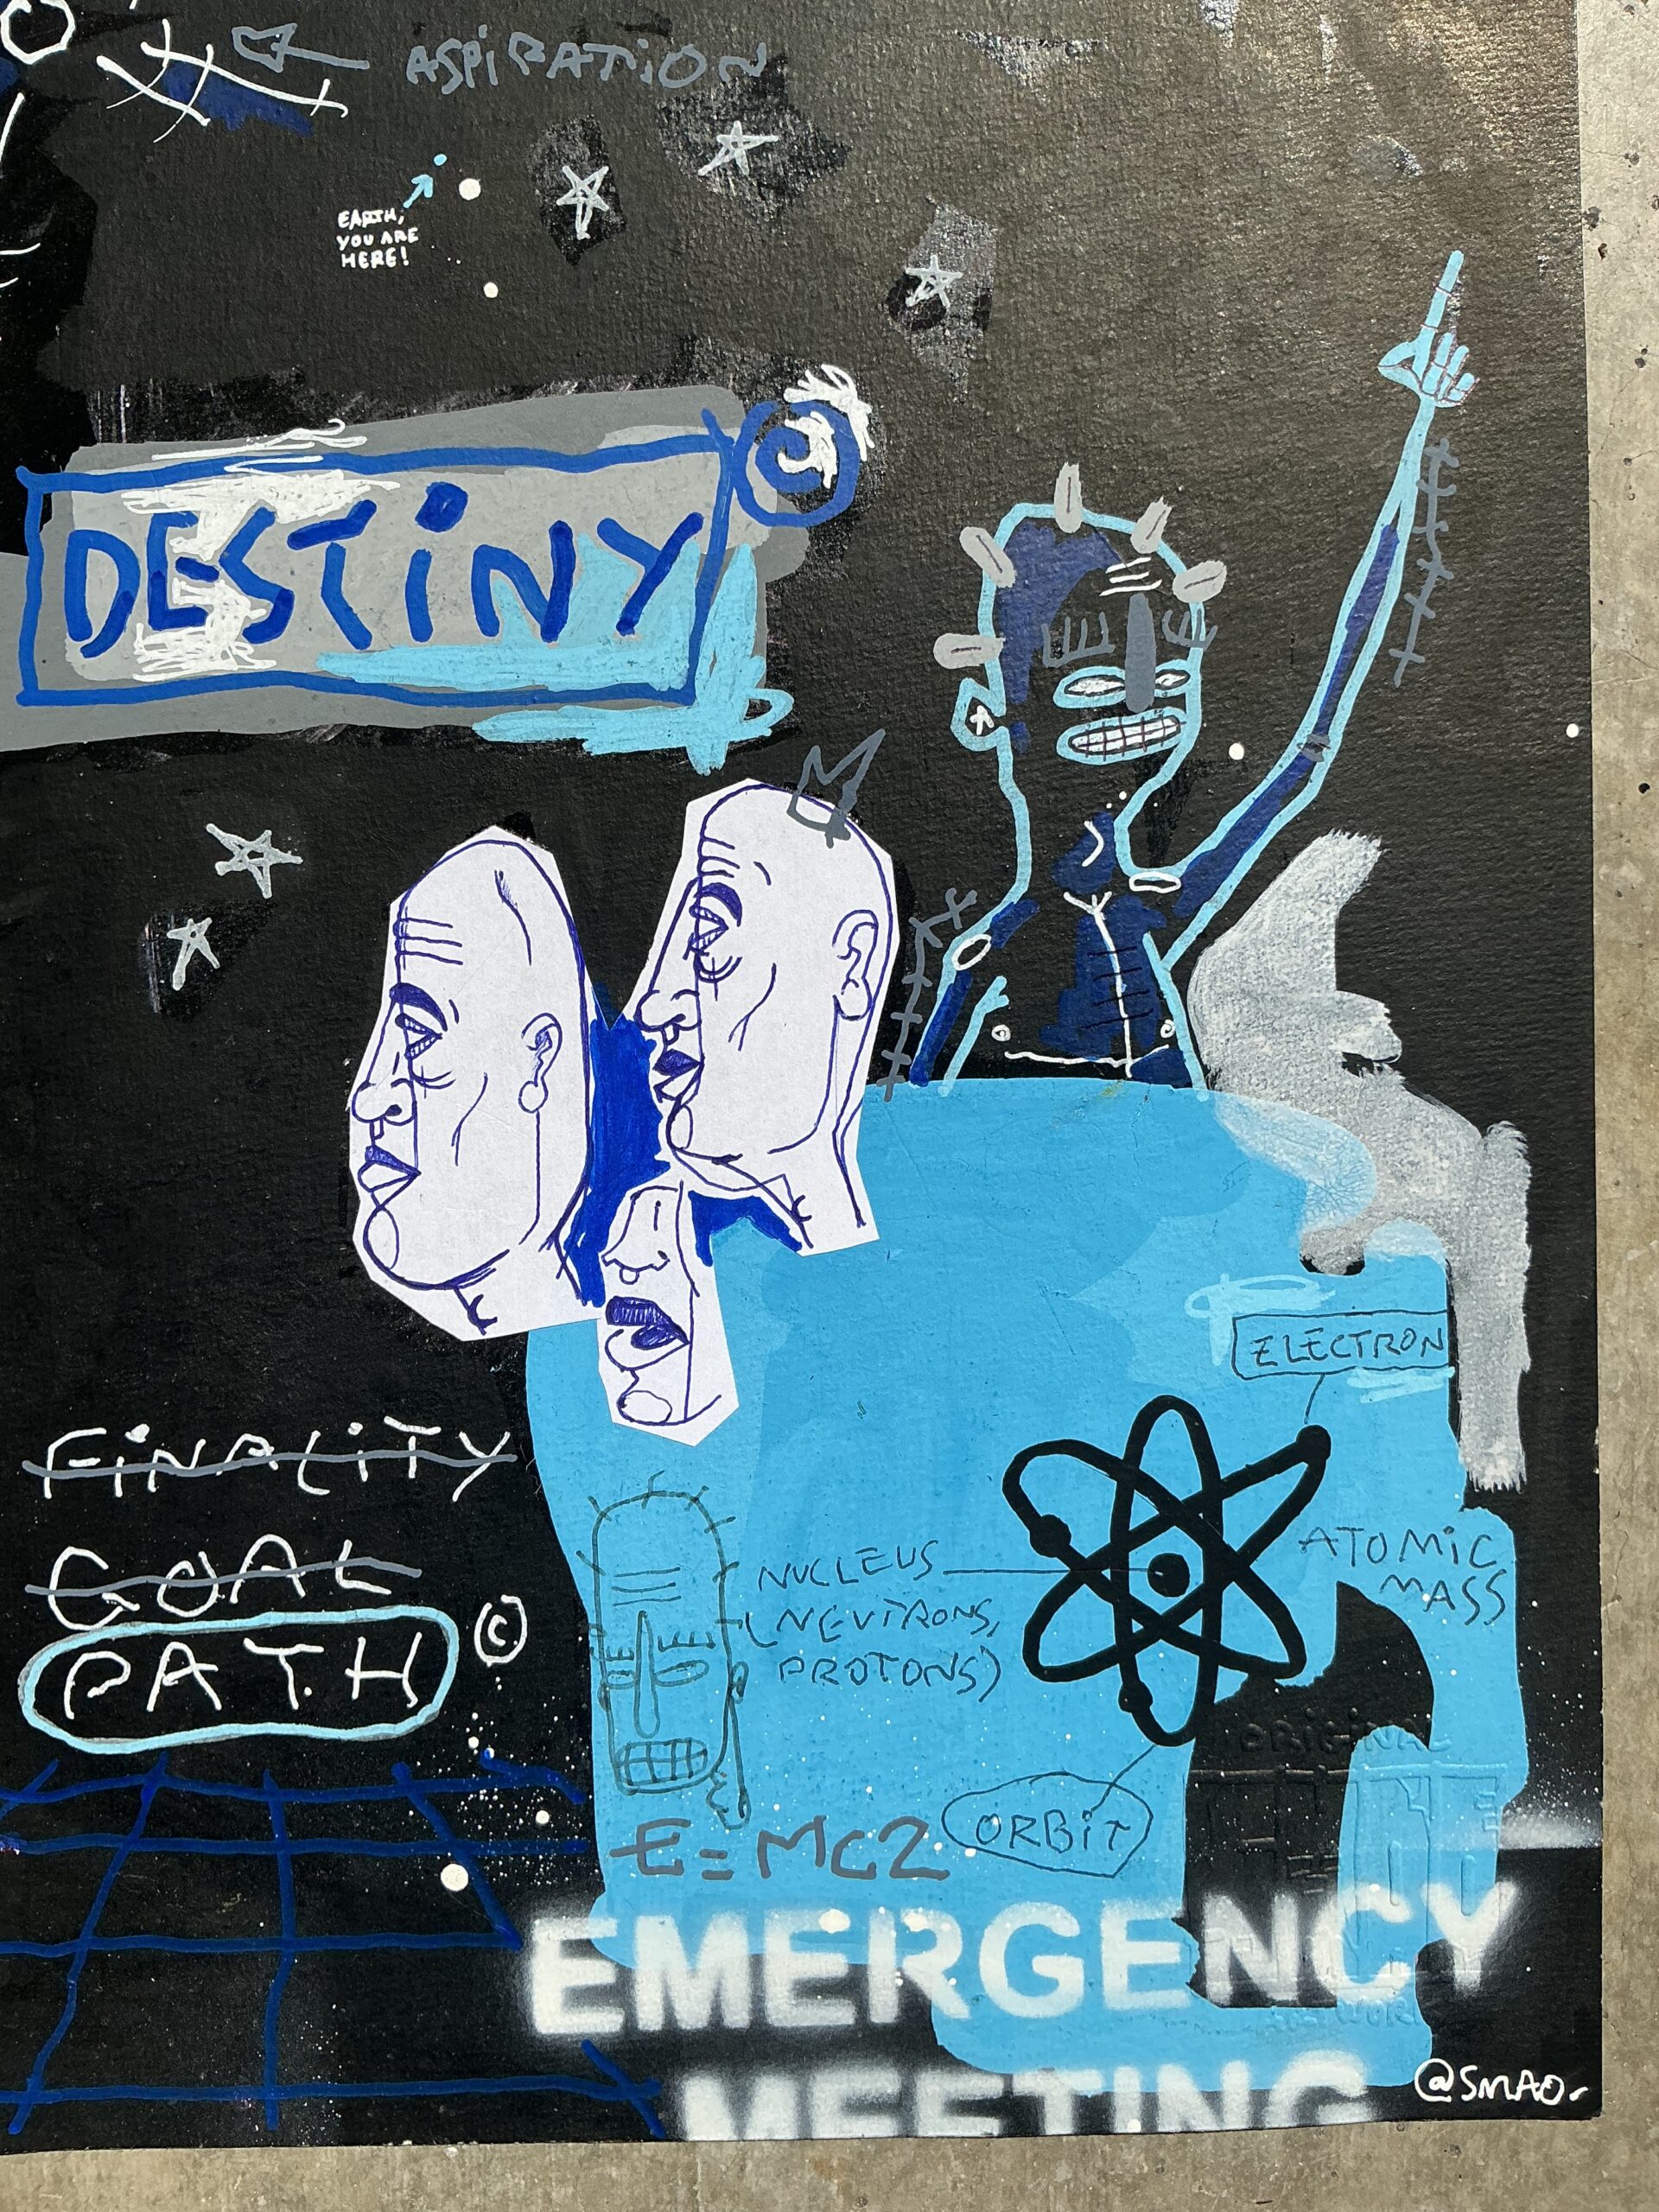 ASPiRATiON
EARTH,
YOU ARE
HERE!
DESTiNY ©
ELECTRON
FiNALiTY
GOAL
PATH ©
NUCLEUS
(NEUTRONS,
PROTONS)
ATOMiC
MASS
ORiGiNAL
E=MC2
ORBiT
EMERGENCY
MEETING
@SMAO.